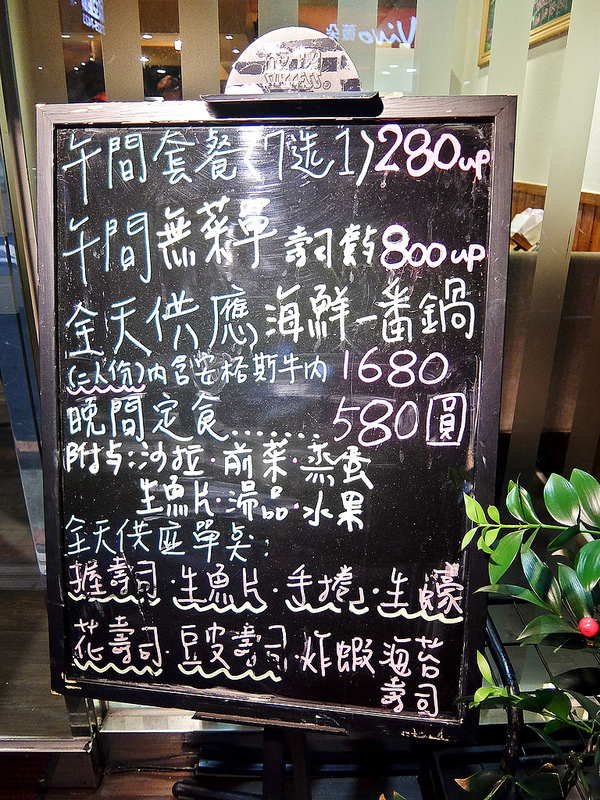 Vivo 薇朵
SUCCESS.
午間套餐(7选1)280up
午間無菜單 壽司套餐800up
全天供應,海鮮一番鍋
(二人份)內含安格斯牛肉1680
晚間定食......580圓
附与:沙拉·前菜·蒸蛋
生魚片·湯品·水果
全天供應單点:
握壽司·生魚片·手捲·生蠔
花壽司·豆皮壽司·炸蝦海苔
壽司